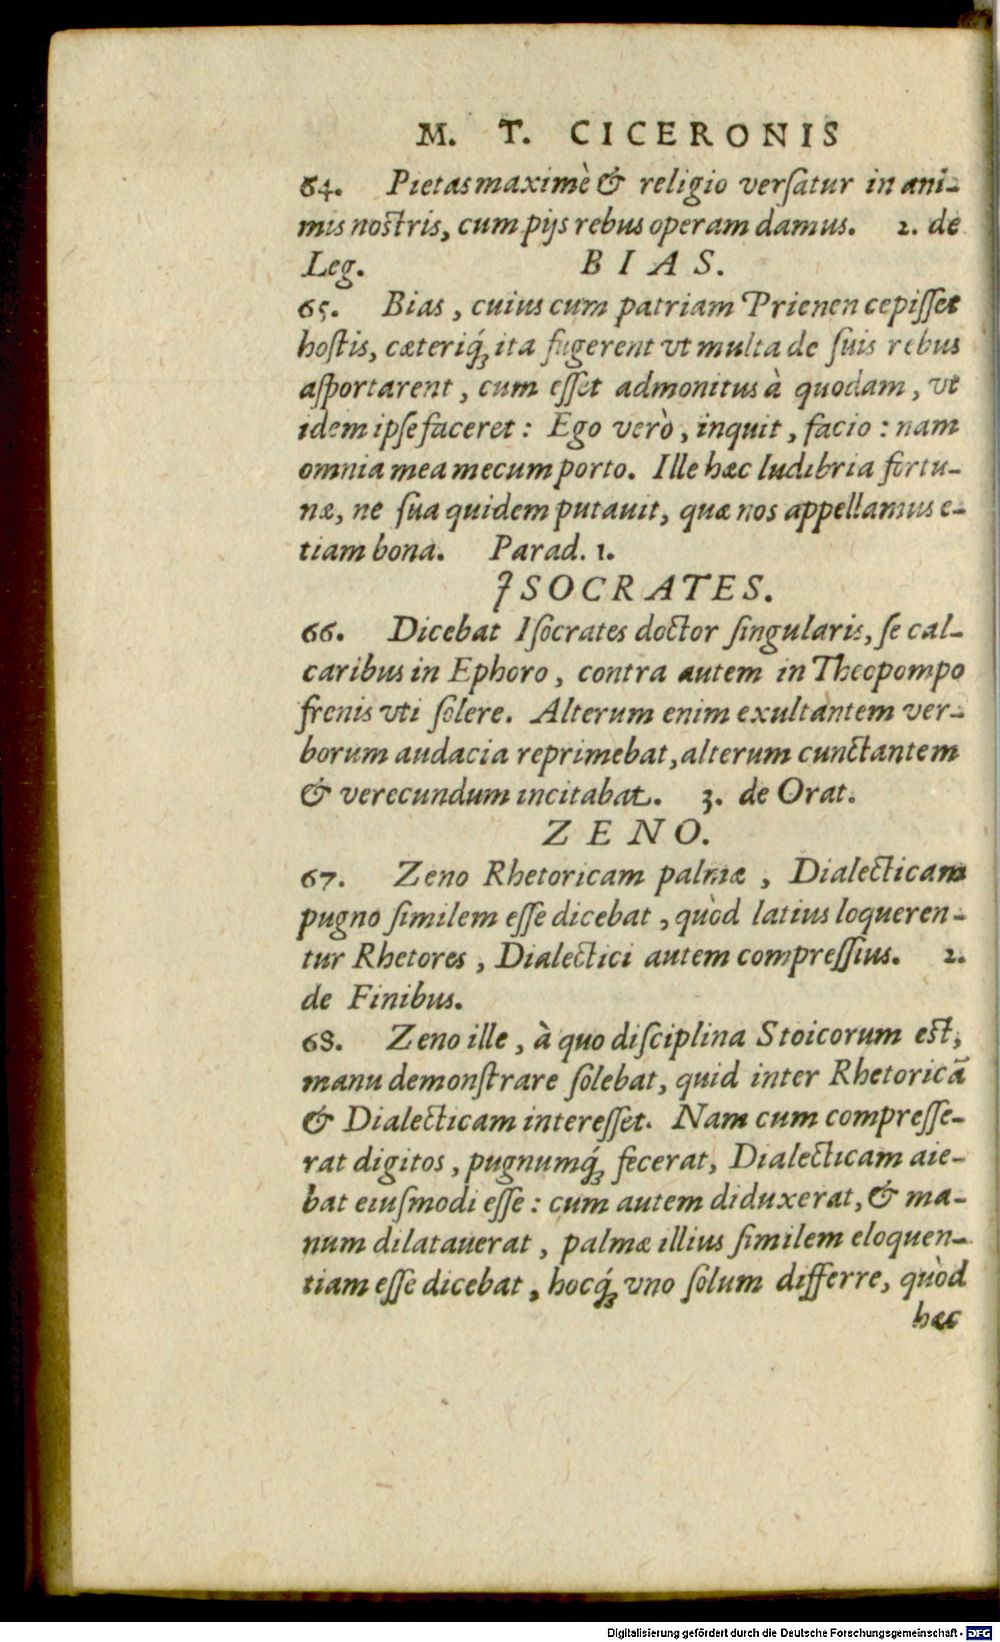 M. T. CICERONIS
64. Pietas maximè & religio verſatur in ani-
mis nostris, cum pijs rebus operam damus. 2. de
Leg. BIAS.
65. Bias, cuius cum patriam Prienen cepiſſet
hoſtis, cæteriq́; ita fugerent vt multa de ſuis rebus
aſportarent, cum eſſet admonitus à quodam, vt
idem ipſe faceret: Ego verò, inquit, facio: nam
omnia mea mecum porto. Ille hæc ludibria fortu-
næ, ne ſua quidem putauit, quæ nos appellamus e-
tiam bona. Parad. 1.
ISOCRATES.
66. Dicebat Iſocrates doctor ſingularis, ſe cal-
caribus in Ephoro, contra autem in Theopompo
frenis vti ſolere. Alterum enim exultantem ver-
borum audacia reprimebat, alterum cunctantem
& verecundum incitabat. 3. de Orat.
ZENO.
67. Zeno Rhetoricam palmæ, Dialecticam
pugno ſimilem eſſe dicebat, quòd latius loqueren-
tur Rhetores, Dialectici autem compreſſius. 2.
de Finibus.
68. Zeno ille, à quo diſciplina Stoicorum est,
manu demonſtrare ſolebat, quid inter Rhetoricã
& Dialecticam intereſſet. Nam cum compreſſe-
rat digitos, pugnumq́; fecerat, Dialecticam aie-
bat eiuſmodi eſſe: cum autem diduxerat, & ma-
num dilatauerat, palmæ illius ſimilem eloquen-
tiam eſſe dicebat, hocq́; vno ſolum differre, quòd
hæc
Digitalisierung gefördert durch die Deutsche Forschungsgemeinschaft - DFG